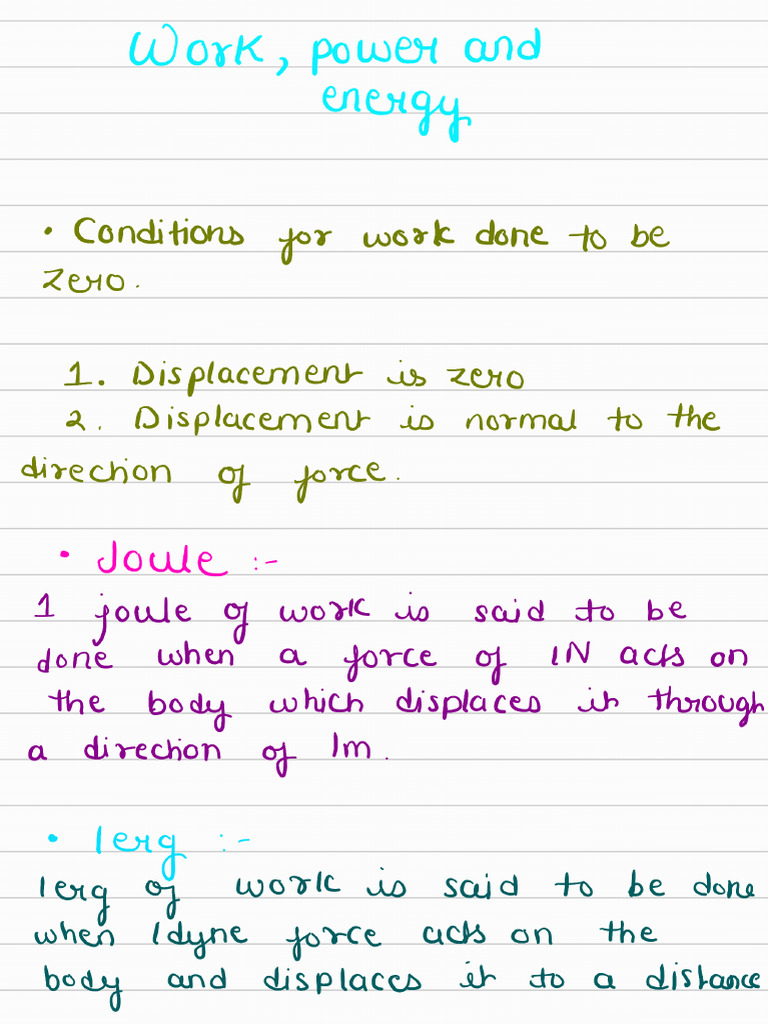 Work, power and
energy
• Conditions for work done to be
zero.
1. Displacement is zero
2. Displacement is normal to the
direction of force.
• Joule :-
1 joule of work is said to be
done when a force of 1N acts on
the body which displaces it through
a direction of 1m.
• 1erg :-
1erg of work is said to be done
when 1dyne force acts on the
body and displaces it to a distance